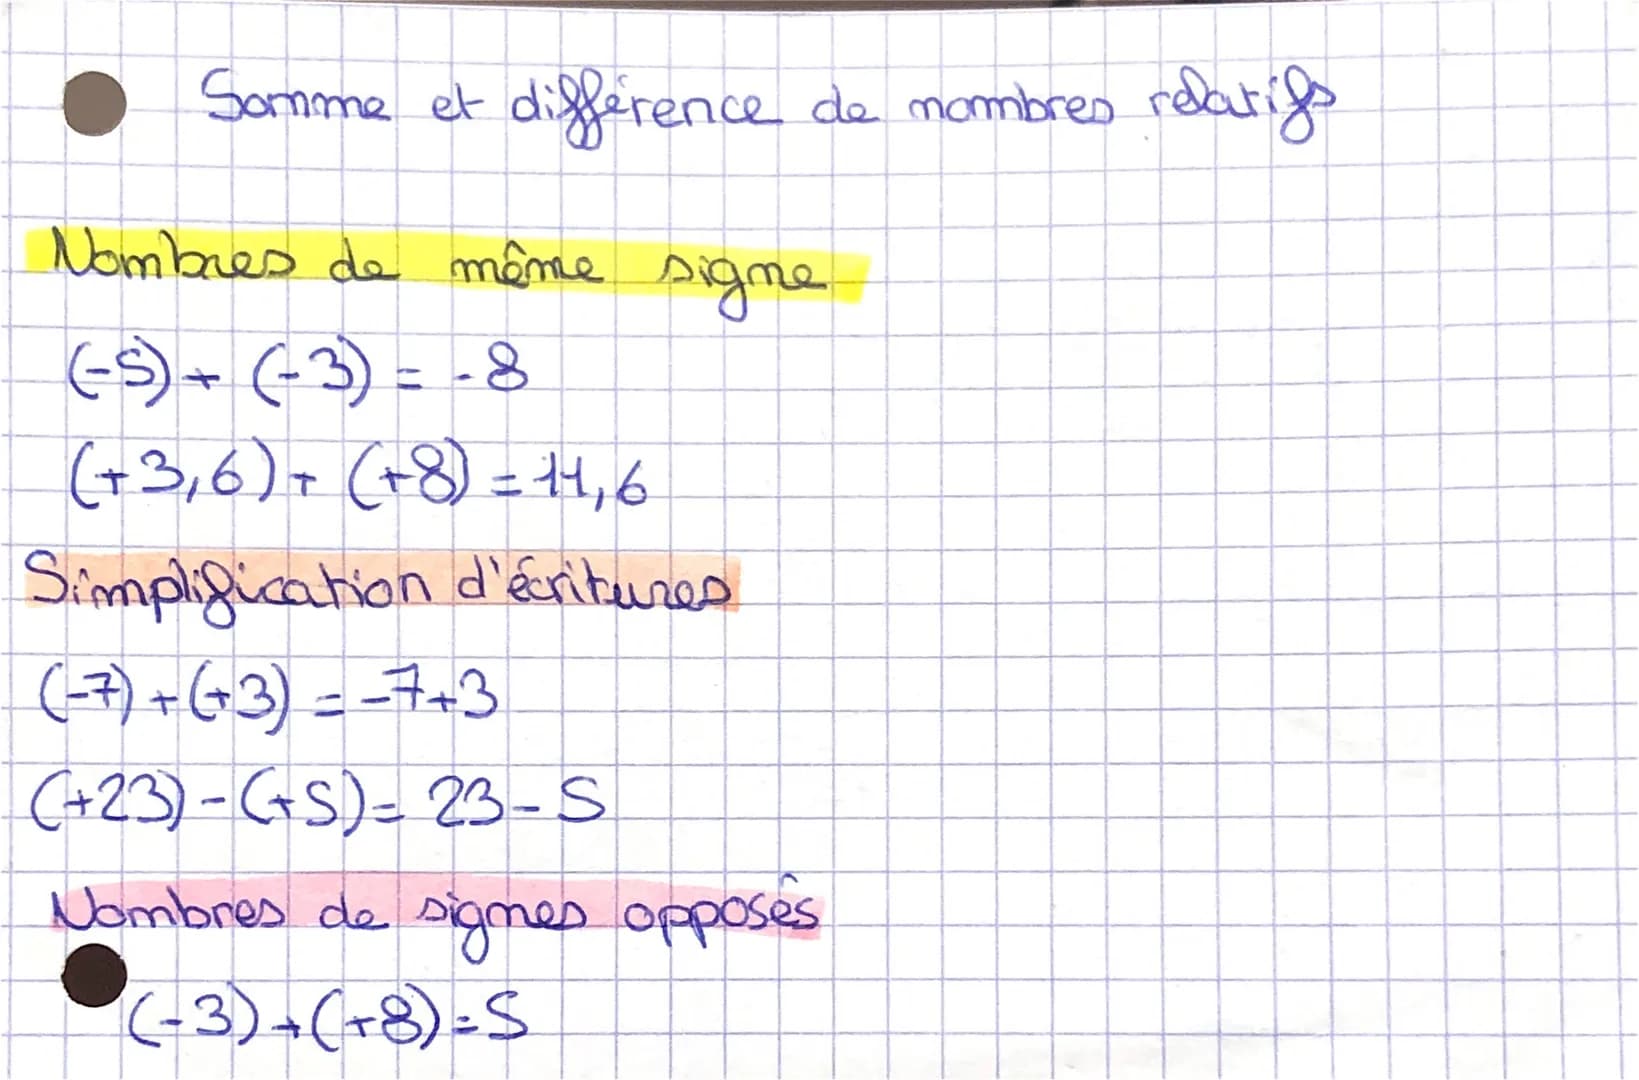 Somme et différence de nombres relatifs
Nombres de même signe
(-5) + (-3) = -8
(+3,6) + (+8) = 11,6
Simplification d'écritures
(-7) + (+3) = -7+3
(+23) - (+5) = 23 - 5
Nombres de signes opposés
(-3) + (+8) = 5